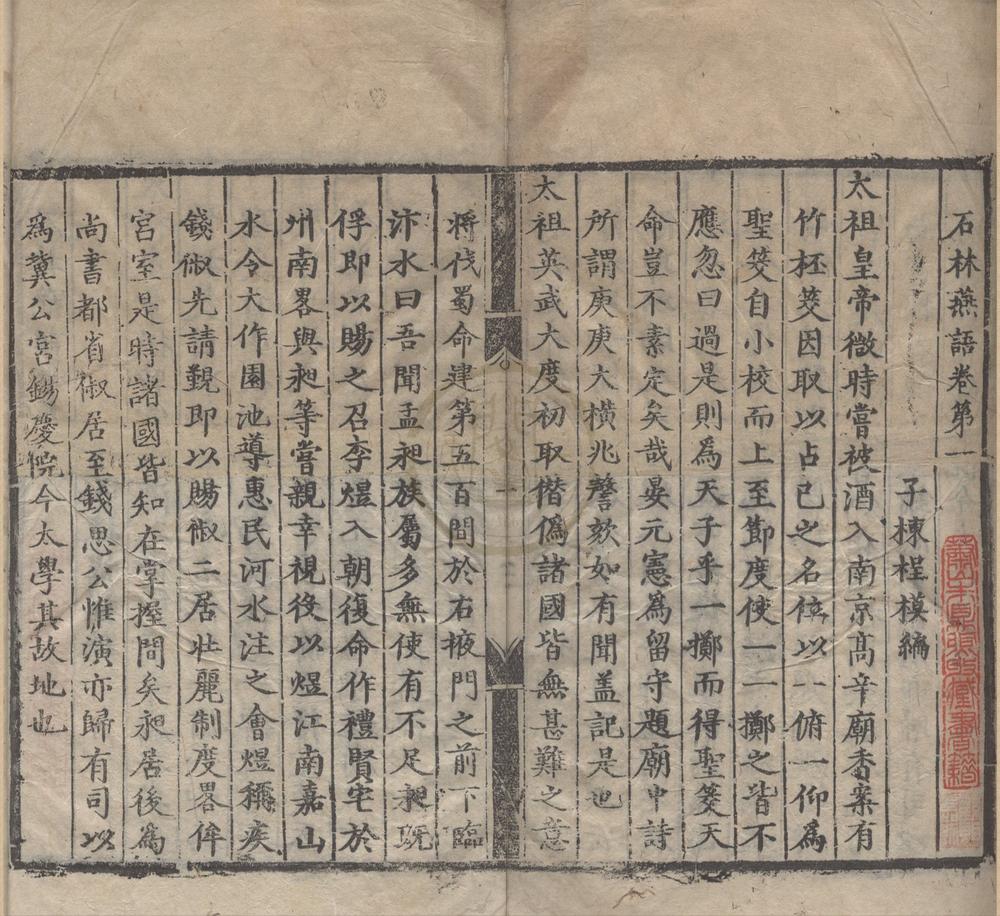 石林燕語卷第一
子棟桯模編
太祖皇帝微時嘗被酒入南京高辛廟香案有
竹柸筊因取以占己之名位以一俯一仰為
聖筊自小校而上至節度使一一擲之皆不
應忽曰過是則為天子乎一擲而得聖筊天
命豈不素定矣哉晏元憲為留守題廟中詩
所謂庚庚大橫兆謦欬如有聞盖記是也
太祖英武大度初取僣偽諸國皆無甚難之意
一
將伐蜀命建第五百間於右掖門之前下臨
汴水曰吾聞孟昶族屬多無使有不足昶既
俘即以賜之召李煜入朝復命作禮賢宅於
州南畧與昶等嘗親幸視役以煜江南嘉山
水令大作園池導惠民河水注之會煜稱疾
錢俶先請覲即以賜俶二居壯麗制度畧侔
宮室是時諸國皆知在掌握間矣昶居後為
尚書都省俶居至錢思公惟演亦歸有司以
為冀公宮錫慶院今太學其故地也